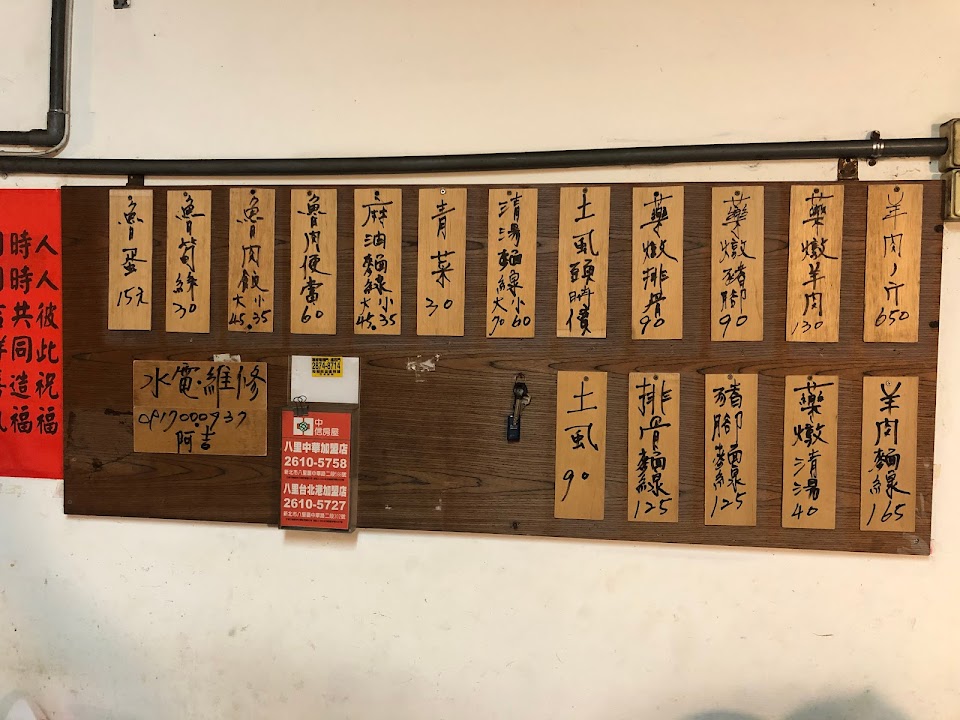 羊肉1斤
650
藥燉羊肉
130
藥燉豬腳
90
藥燉排骨
90
土虱頭時價
清湯麵線
大70 小60
青菜
30
麻油麵線
大45. 小35
魯肉便當
60
魯肉飯
大45. 小35
魯筍絲
30
魯蛋
15元
羊肉麵線
165
藥燉清湯
40
豬腳麵線
125
排骨麵線
125
土虱
90
水電.維修
0917000937
阿吉
2674-8714
中信房屋
八里中華加盟店
2610-5758
八里台北港加盟店
2610-5727
人人彼此祝福
時時共同造福